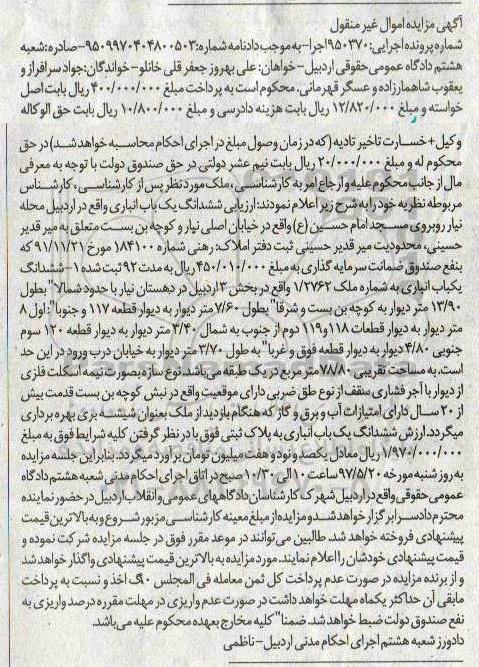 آگهی مزایده اموال غیر منقول
شماره پرونده اجرایی: ۹۵۰۳۷۰اجرا-به موجب دادنامه شماره: ۹۵۰۹۹۷۰۴۰۴۸۰۰۵۰۳-صادره: شعبه
هشتم دادگاه عمومی حقوقی اردبیل- خواهان: علی بهروز جعفر قلی خانلو- خواندگان: جواد سرافراز و
یعقوب شاهمارزاده و عسگر قهرمانی. محکوم است به پرداخت مبلغ ۴۰۰/۰۰۰/۰۰۰ ریال بابت اصل
خواسته و مبلغ ۱۲/۸۲۰/۰۰۰ ریال بابت هزینه دادرسی و مبلغ ۱۰/۸۰۰/۰۰۰ ریال بابت حق الوکاله
وکیل+خسارت تاخیر تادیه (که در زمان وصول مبلغ در اجرای احکام محاسبه خواهد شد) در حق
محکوم له و مبلغ ۲۰/۰۰۰/۰۰۰ ریال بابت نیم عشر دولتی در حق صندوق دولت با توجه به معرفی
مال از جانب محکوم علیه و ارجاع امر به کارشناسی، ملک مورد نظر پس از کارشناسی، کارشناس
مربوطه نظریه خود را به شرح زیر اعلام نمودند: ارزیابی ششدانگ یک باب انباری واقع در اردبیل محله
نیار روبروی مسجد امام حسین (ع) واقع در خیابان اصلی نیار و کوچه بن بست متعلق به میر قدیر
حسینی، محدودیت میر قدیر حسینی ثبت دفتر املاک: رهنی شماره ۱۸۴۱۰۰ مورخ ۹۱/۱۱/۲۱ که
بنفع صندوق ضمانت سرمایه گذاری به مبلغ ۴۵۰/۰۱۰/۰۰۰ ریال به مدت ۹۲ ثبت شده ۱-ششدانگ
یکباب انباری به شماره ملک ۱/۲۷۶۲ واقع در بخش ۳ اردبیل در دهستان نیار با حدود شمالا" بطول
۱۳/۹۰ متر دیوار به کوچه بن بست و شرقا" بطول ۷/۶۰ متر دیوار به دیوار قطعه ۱۱۷ و جنوبا": اول ۸
متر دیوار به دیوار قطعات ۱۱۸و۱۱۹ دوم از جنوب به شمال ۳/۴۰ متر دیوار به دیوار قطعه ۱۲۰ سوم
جنوبی ۴/۸۰ دیوار به دیوار قطعه فوق و غربا" به طول ۳/۷۰ متر دیوار به خیابان درب ورود در این حد
است. به مساحت تقریبی ۷۸/۸۰ متر مربع در یک طبقه می باشد. نوع سازه بصورت نیمه اسکلت فلزی
از دیوار با آجر فشاری سقف از نوع طق ضربی دارای موقعیت واقع در نبش کوچه بن بست قدمت بیش
از ۲۰ سال دارای امتیازات آب و برق و گاز که هنگام بازدید از ملک بعنوان شیشه بری بهره برداری
میگردد. ارزش ششدانگ یک باب انباری به پلاک ثبتی فوق با در نظر گرفتن کلیه شرایط فوق به مبلغ
۱/۹۷۰/۰۰۰/۰۰۰ ریال معادل یکصد و نود و هفت میلیون تومان برآورد میگردد. بنابراین جلسه مزایده
به روز شنبه مورخه ۹۷/۵/۲۰ ساعت ۱۰ الی ۱۰/۳۰ صبح در اتاق اجرای احکام مدنی شعبه هشتم دادگاه
عمومی حقوقی واقع در اردبیل شهرک کارشناسان دادگاههای عمومی و انقلاب اردبیل در حضور نماینده
محترم دادسرا برگزار خواهد شد و مزایده از مبلغ معینه کارشناسی مزبور شروع و به بالاترین قیمت
پیشنهادی فروخته خواهد شد. طالبین می توانند در موعد مقرر فوق در جلسه مزایده شرکت نموده و
قیمت پیشنهادی خودشان را اعلام نمایند. مورد مزایده به بالاترین قیمت پیشنهادی واگذار خواهد شد
و از برنده مزایده در صورت عدم پرداخت کل ثمن معامله فی المجلس ۱۰٪ اخذ و نسبت به پرداخت
مابقی آن حداکثر یکماه مهلت خواهد داشت در صورت عدم واریزی در مهلت مقرره درصد واریزی به
نفع صندوق دولت ضبط خواهد شد. ضمنا" کلیه مخارج بعهده محکوم علیه می باشد.
دادورز شعبه هشتم اجرای احکام مدنی اردبیل- ناظمی